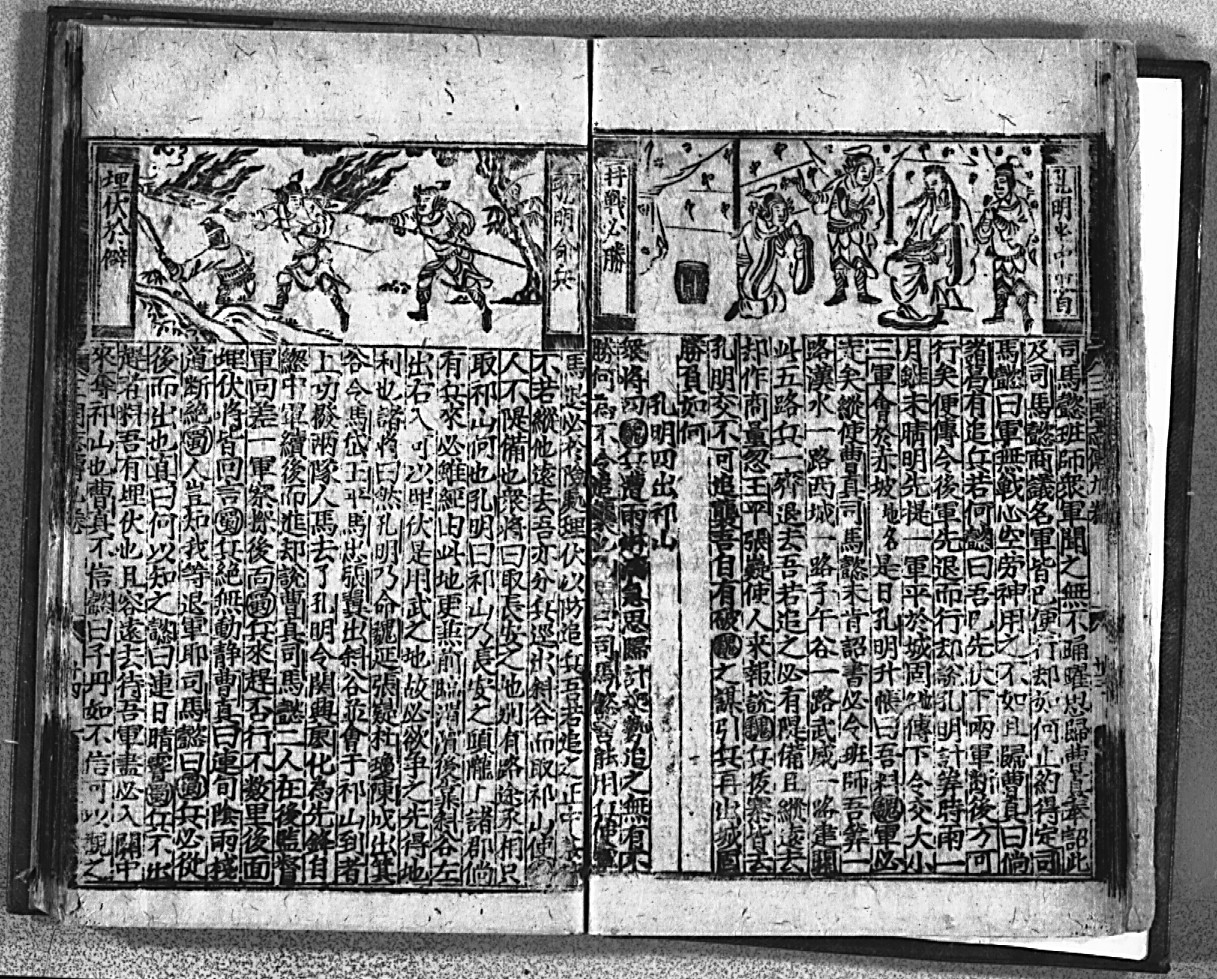 孔明
戰必勝
司馬懿班師衆軍聞之無不踴躍思歸曹真奉詔此
及司馬懿商議名軍皆已便行却如何止約得定司
馬懿曰軍無戰心空勞神用之不如且歸曹真曰倘
諸葛有追兵若何懿曰吾已先伏下兩軍斷後方可
行矣便傳令後軍先退而行却說孔明計筭時雨一
月雖未晴明先提一軍平於城固傳下令交大小
三軍會於赤坡地名是日孔明升帳曰吾料魏軍必
走矣縱使曹真司馬懿未肯詔書必令班師吾筭一
路漢水一路西城一路子午谷一路武威一路建關
此五路兵一齊退去吾若追之必有隄備且縱遠去
却作商量忽王平張嶷使人來報說魏兵拔寨皆去
孔明交不可追襲吾自有破魏之謀引兵再出城固
勝負如何
孔明四出祁山
衆將曰魏兵遭雨淋急思歸計乘勢追之無有不
勝何為不令追襲也司馬懿善能用兵
孔明命兵
埋伏於僻
馬退必於險處埋伏以防追兵吾若追之正中
不若縱他遠去吾亦分兵逕出斜谷而取祁山使
人不隄備也衆將曰取長安之地別有路途丞相只
取祁山何也孔明曰祁山乃長安之頭離上諸郡倘
有兵來必經由此地更兼前臨渭濱後靠斜谷左
出右入可以埋伏是用武之地故必欲爭之先得地
利也諸將曰然孔明乃命魏延張嶷杜瓊陳式出箕
谷令馬岱王平馬忠張翼出斜谷並會于祁山到者
上功撥兩隊人馬去了孔明令関興廖化為先鋒自
總中軍續後而進却說曹真司馬懿二人在後監督
軍回差一軍探後面蜀兵來趕否行不数里後面
埋伏將皆回言蜀兵絕無動静曹真曰連旬陰雨棧
道断絕蜀人豈知我等退軍耶司馬懿曰蜀兵必從
後而出也真曰何以知之懿曰連日晴霽蜀兵不出
趕者料吾有埋伏也且容遠去待吾軍盡必入關中
來奪祁山也曹真不信懿曰子丹如不信可以觀之